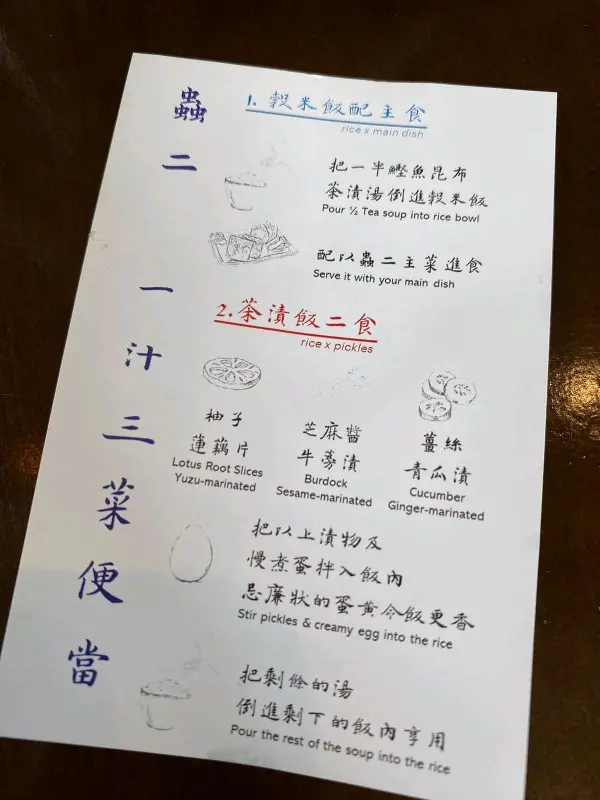 蟲二
一汁三菜便當
1. 穀米飯配主食
rice x main dish
把一半鰹魚昆布
茶漬湯倒進穀米飯
Pour ½ Tea soup into rice bowl
配以蟲二主菜進食
Serve it with your main dish
2.茶漬飯二食
rice x pickles
柚子
蓮藕片
Lotus Root Slices
Yuzu-marinated
芝麻醬
牛蒡漬
Burdock
Sesame-marinated
薑絲
青瓜漬
Cucumber
Ginger-marinated
把以上漬物及
慢煮蛋拌入飯內
忌廉狀的蛋黃令飯更香
Stir pickles & creamy egg into the rice
把剩餘的湯
倒進剩下的飯內享用
Pour the rest of the soup into the rice